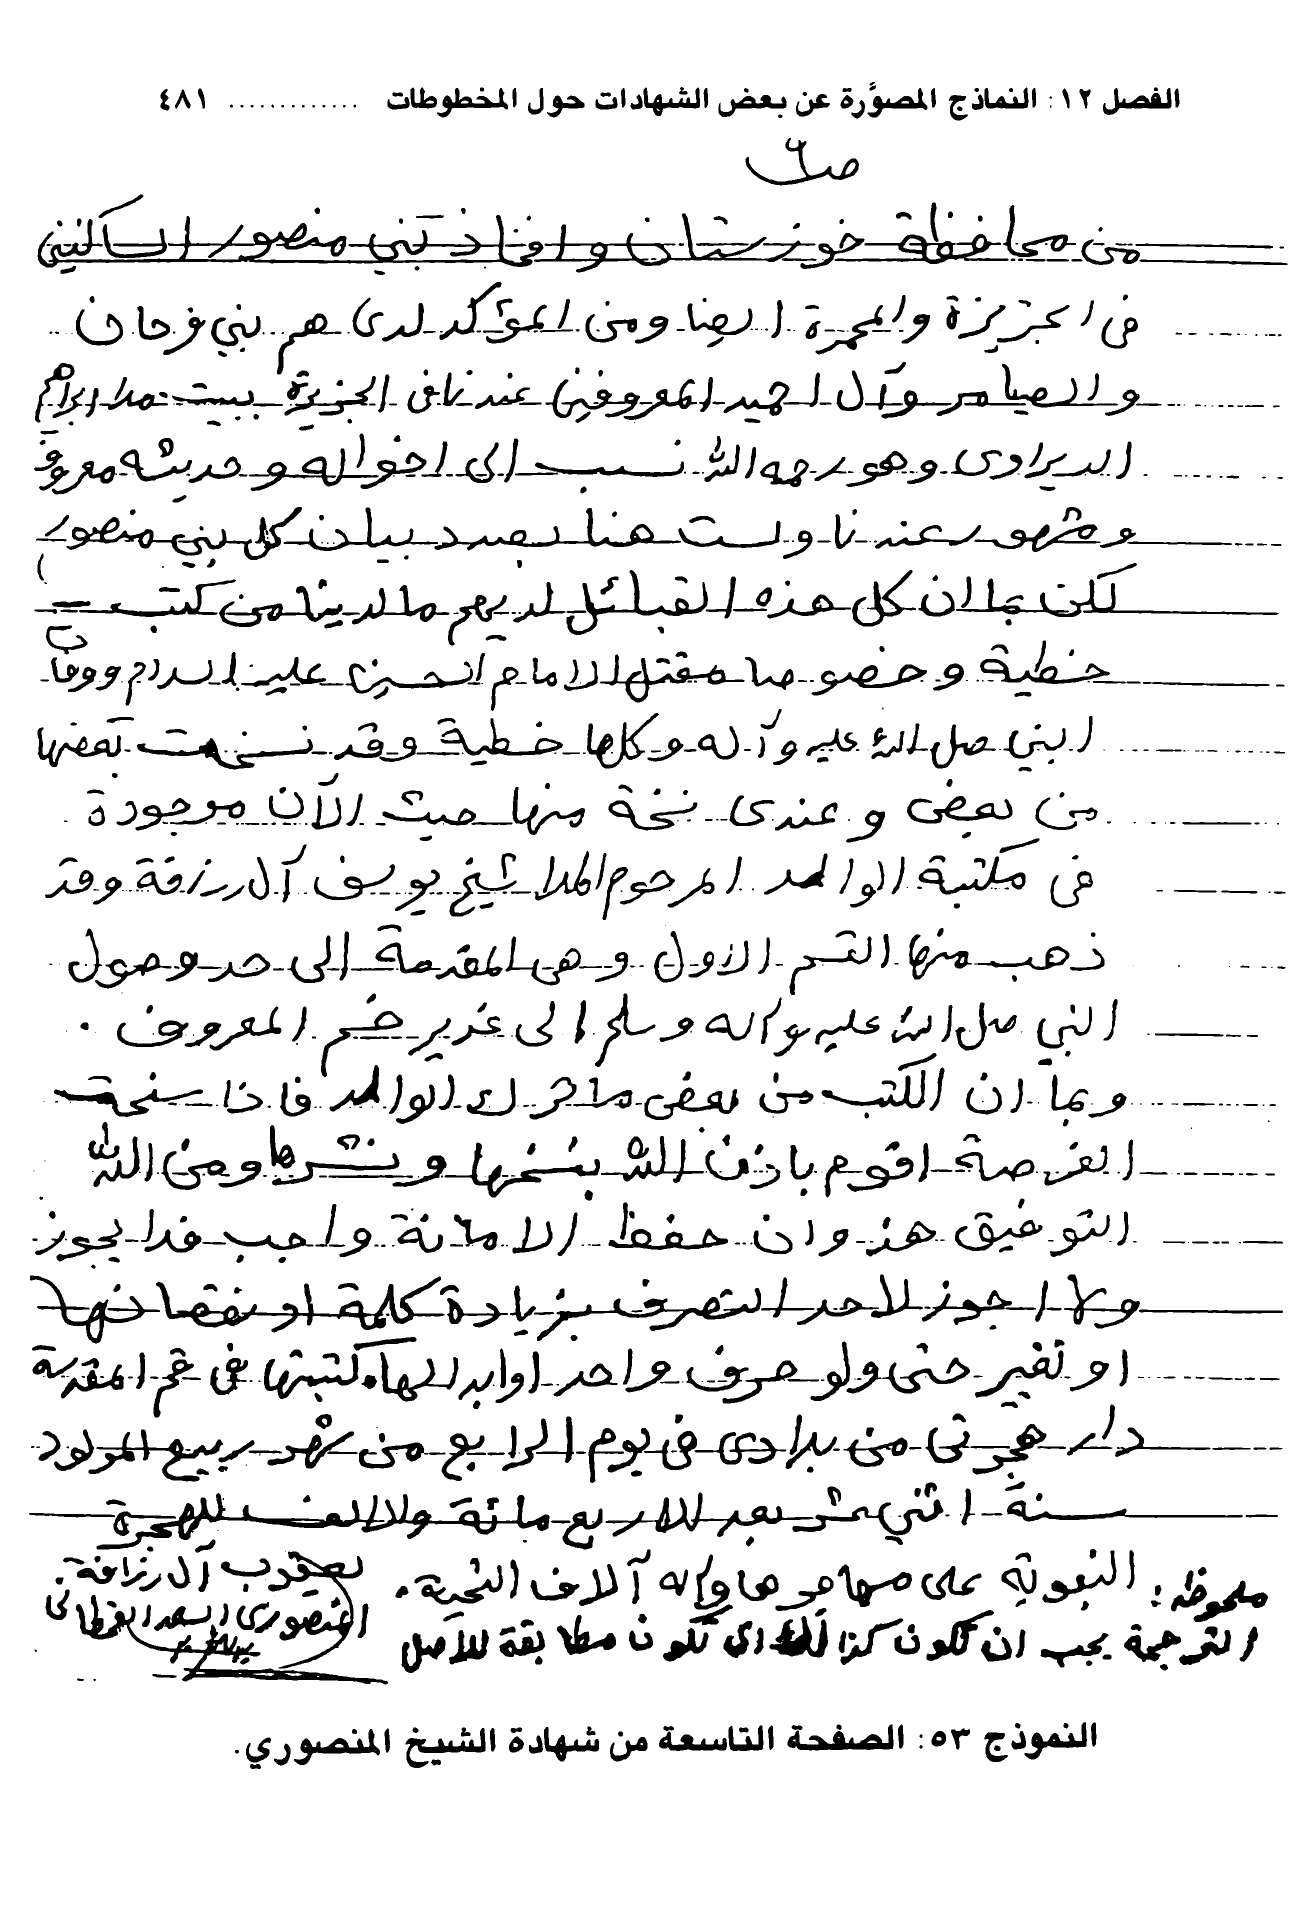 الفصل ١٢: النماذج المصوَّرة عن بعض الشهادات حول المخطوطات ............. ٤٨١
من محافظة خوزستان وافخاذ بني منصور الساكنين
فى الجزيزة والمحمرة ايضا ومن المؤكد لدى هم بني فرحان
والصيامر وآل احميد المعروفين عندنا فى الجزيرة ببيت ملا ابراهيم
الديراوى وهو رحمه الله نسب الى اخواله وحديثه معروف
ومشهور عندنا ولست هنا بصدد بيان كل بني منصور
لكن بما ان كل هذه القبائل لديهم ما لدينا من كتب
خطية وخصوصا مقتل الامام الحسين عليه السلام ووفات
النبي صل الله عليه وآله وكلها خطية وقد نسخت بعضها
من بعض وعندى نسخة منها حيث الآن موجودة
فى مكتبة الوالد المرحوم الملا شيخ يوسف آل رزاقة وقد
ذهب منها القسم الاول وهى المقدمة الى حد وصول
النبي صل الله عليه وآله وسلم الى غدير خم المعروف .
وبما ان الكتب من بعض ما ترك الوالد فاذا سنحت
الفرصة اقوم باذن الله بنسخها ونشرها ومن الله
التوفيق هذ وان حفظ الامانة واجب فلا يجوز
ولا اجوز لاحد التصرف بزيادة كلمة او نقصانها
او تغيير حتى ولو حرف واحد او ابدالها. كتبتها فى قم المقدسة
دار هجرتى من بلادى فى يوم الرابع من شهر ربيع المولود
سنة اثني عشر بعد الاربع مائة والالف للهجرة
النبوية على مهاجرها وآله آلاف التحية. يعقوب آل رزاقة
المنصورى السعد القحطانى
ملحوظه: الترجمة يجب ان تكون كذالك اى تكون مطابقة للأصل
النموذج ٥٣: الصفحة التاسعة من شهادة الشيخ المنصوري.